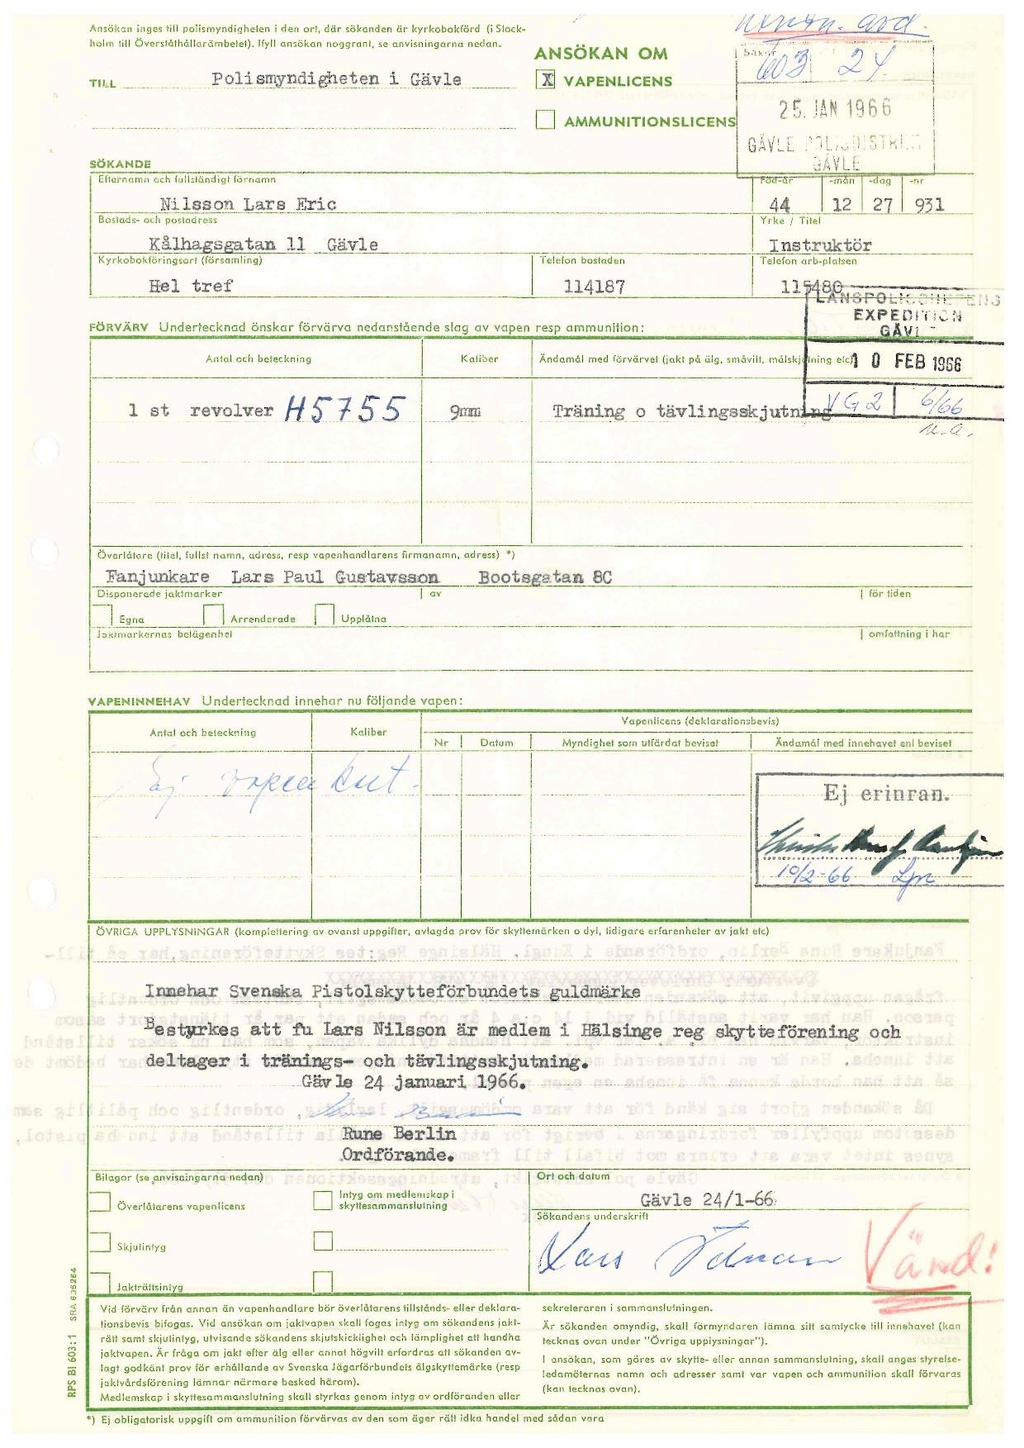 Ansökan inges till polismyndigheten i den ort, där sökanden är kyrkobokförd (i Stock-
holm till Överståthållarämbetet). Ifyll ansökan noggrant, se anvisningarna nedan.
TILL Polismyndigheten i Gävle
ANSÖKAN OM
X VAPENLICENS
AMMUNITIONSLICENS
603 24
25. JAN 1966
GÄVLE POLISDISTRIKT
GÄVLE
SÖKANDE
Efternamn och fullständigt förnamn
Född-år -mån -dag -nr
Nilsson Lars Eric 44 12 27 931
Bostads- och postadress Yrke / Titel
Kålhagsgatan 11 Gävle Instruktör
Kyrkobokföringsort (församling) Telefon bostaden Telefon arb-platsen
Hel tref 114187 115480
LÄNSPOLISCHEFENS
EXPEDITION
GÄVLE
10 FEB 1966
VG2 6/66
FÖRVÄRV Undertecknad önskar förvärva nedanstående slag av vapen resp ammunition:
Antal och beteckning Kaliber Ändamål med förvärvet (jakt på älg, småvilt, målskjutning etc)
1 st revolver H5755 9mm Träning o tävlingsskjutning
Överlåtare (titel, fullst namn, adress, resp vapenhandlarens firmanamn, adress) *)
Fanjunkare Lars Paul Gustavsson Bootsgatan 8C
Disponerade jaktmarker av för tiden
Egna Arrenderade Upplåtna
Jaktmarkernas belägenhet omfattning i har
VAPENINNEHAV Undertecknad innehar nu följande vapen:
Antal och beteckning Kaliber Vapenlicens (deklarationsbevis)
Nr Datum Myndighet som utfärdat beviset Ändamål med innehavet enl beviset
Ej vapen
Ej erinran.
10/2-66
ÖVRIGA UPPLYSNINGAR (komplettering av ovanst uppgifter, avlagda prov för skyttemärken o dyl, tidigare erfarenheter av jakt etc)
Innehar Svenska Pistolskytteförbundets guldmärke
Bestyrkes att fu Lars Nilsson är medlem i Hälsinge reg skytteförening och
deltager i tränings- och tävlingsskjutning.
Gävle 24 januari 1966.
Rune Berlin
Rune Berlin
Ordförande.
Bilagor (se anvisningarna nedan)
Överlåtarens vapenlicens
Intyg om medlemskap i
skyttesammanslutning
Skjutintyg
Jakträttsintyg
Ort och datum
Gävle 24/1-66
Sökandens underskrift
Lars
Vänd!
Vid förvärv från annan än vapenhandlare bör överlåtarens tillstånds- eller deklara-
tionsbevis bifogas. Vid ansökan om jaktvapen skall fogas intyg om sökandens jakt-
rätt samt skjutintyg, utvisande sökandens skjutskicklighet och lämplighet att handha
jaktvapen. Är fråga om jakt efter älg eller annat högvilt erfordras att sökanden av-
lagt godkänt prov för erhållande av Svenska Jägarförbundets älgskyttemärke (resp
jaktvårdsförening lämnar närmare besked härom).
Medlemskap i skyttesammanslutning skall styrkas genom intyg av ordföranden eller
sekreteraren i sammanslutningen.
Är sökanden omyndig, skall förmyndaren lämna sitt samtycke till innehavet (kan
tecknas ovan under "Övriga upplysningar").
I ansökan, som göres av skytte- eller annan sammanslutning, skall anges styrelse-
ledamöternas namn och adresser samt var vapen och ammunition skall förvaras
(kan tecknas ovan).
*) Ej obligatorisk uppgift om ammunition förvärvas av den som äger rätt idka handel med sådan vara
RPS BI 603:1